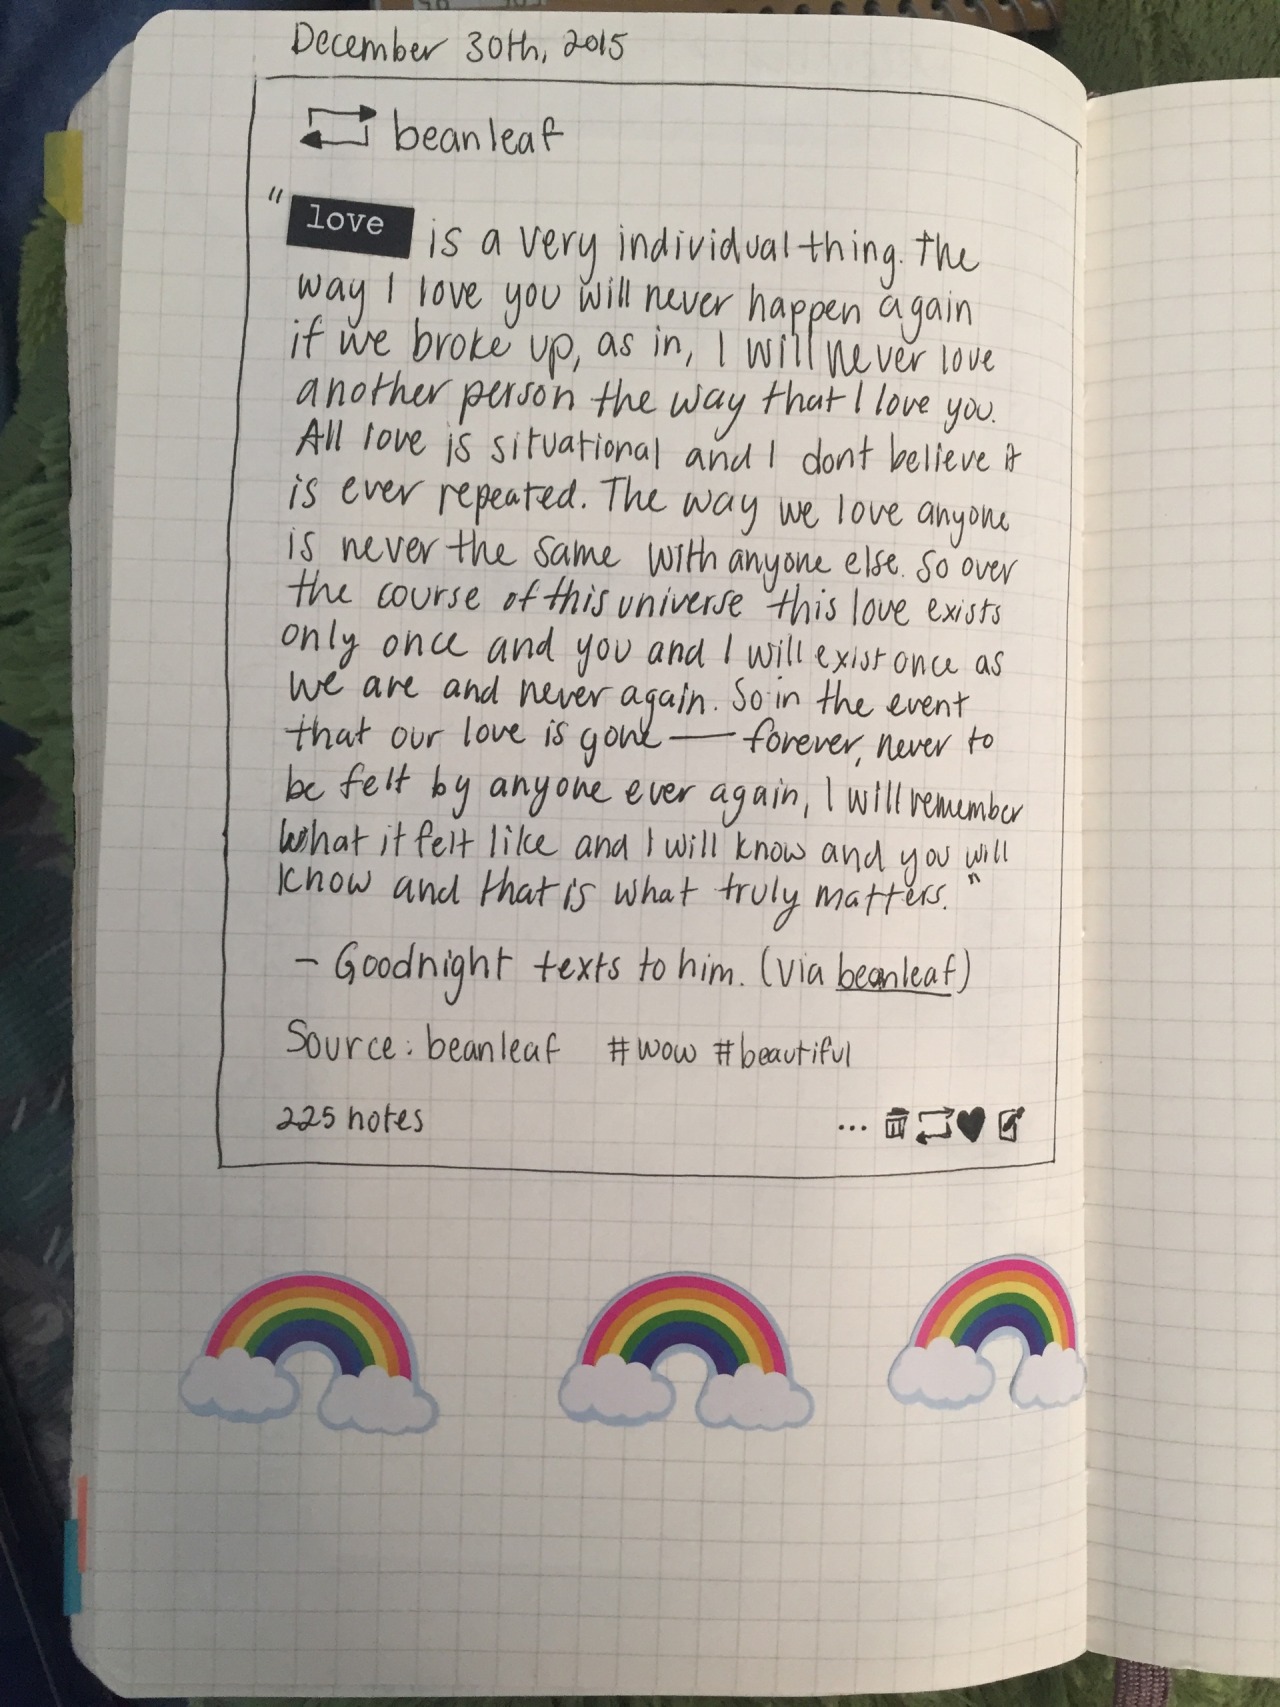 December 30th, 2015
beanleaf
"love is a very individual thing. The
way I love you will never happen again
if we broke up, as in, I will never love
another person the way that I love you.
All love is situational and I dont believe it
is ever repeated. The way we love anyone
is never the same with anyone else. So over
the course of this universe this love exists
only once and you and I will exist once as
we are and never again. So in the event
that our love is gone — forever, never to
be felt by anyone ever again, I will remember
what it felt like and I will know and you will
know and that is what truly matters."
- Goodnight texts to him. (via beanleaf)
Source: beanleaf #wow #beautiful
225 notes ...